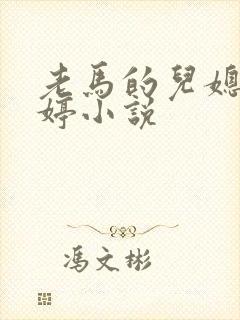 老馬的兒媳
婷小説
馮文彬